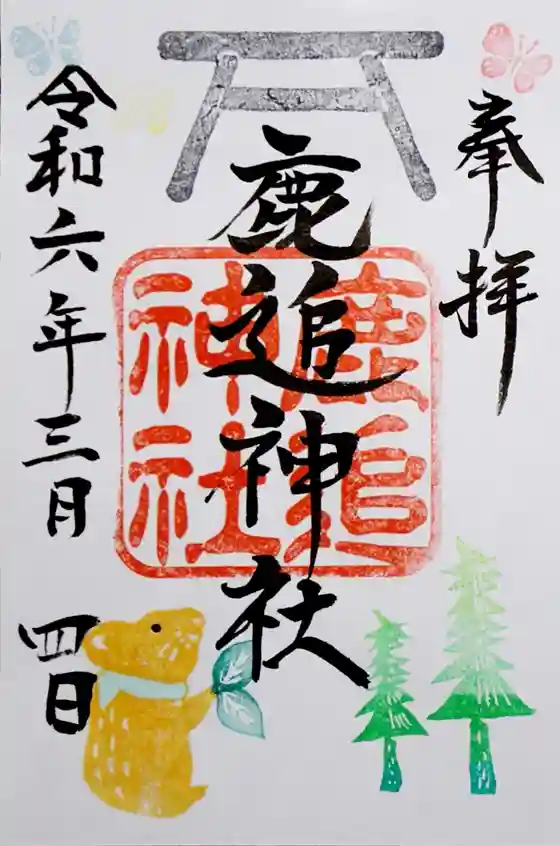 奉拝
鹿追神社
鹿追
神社
令和六年三月四日